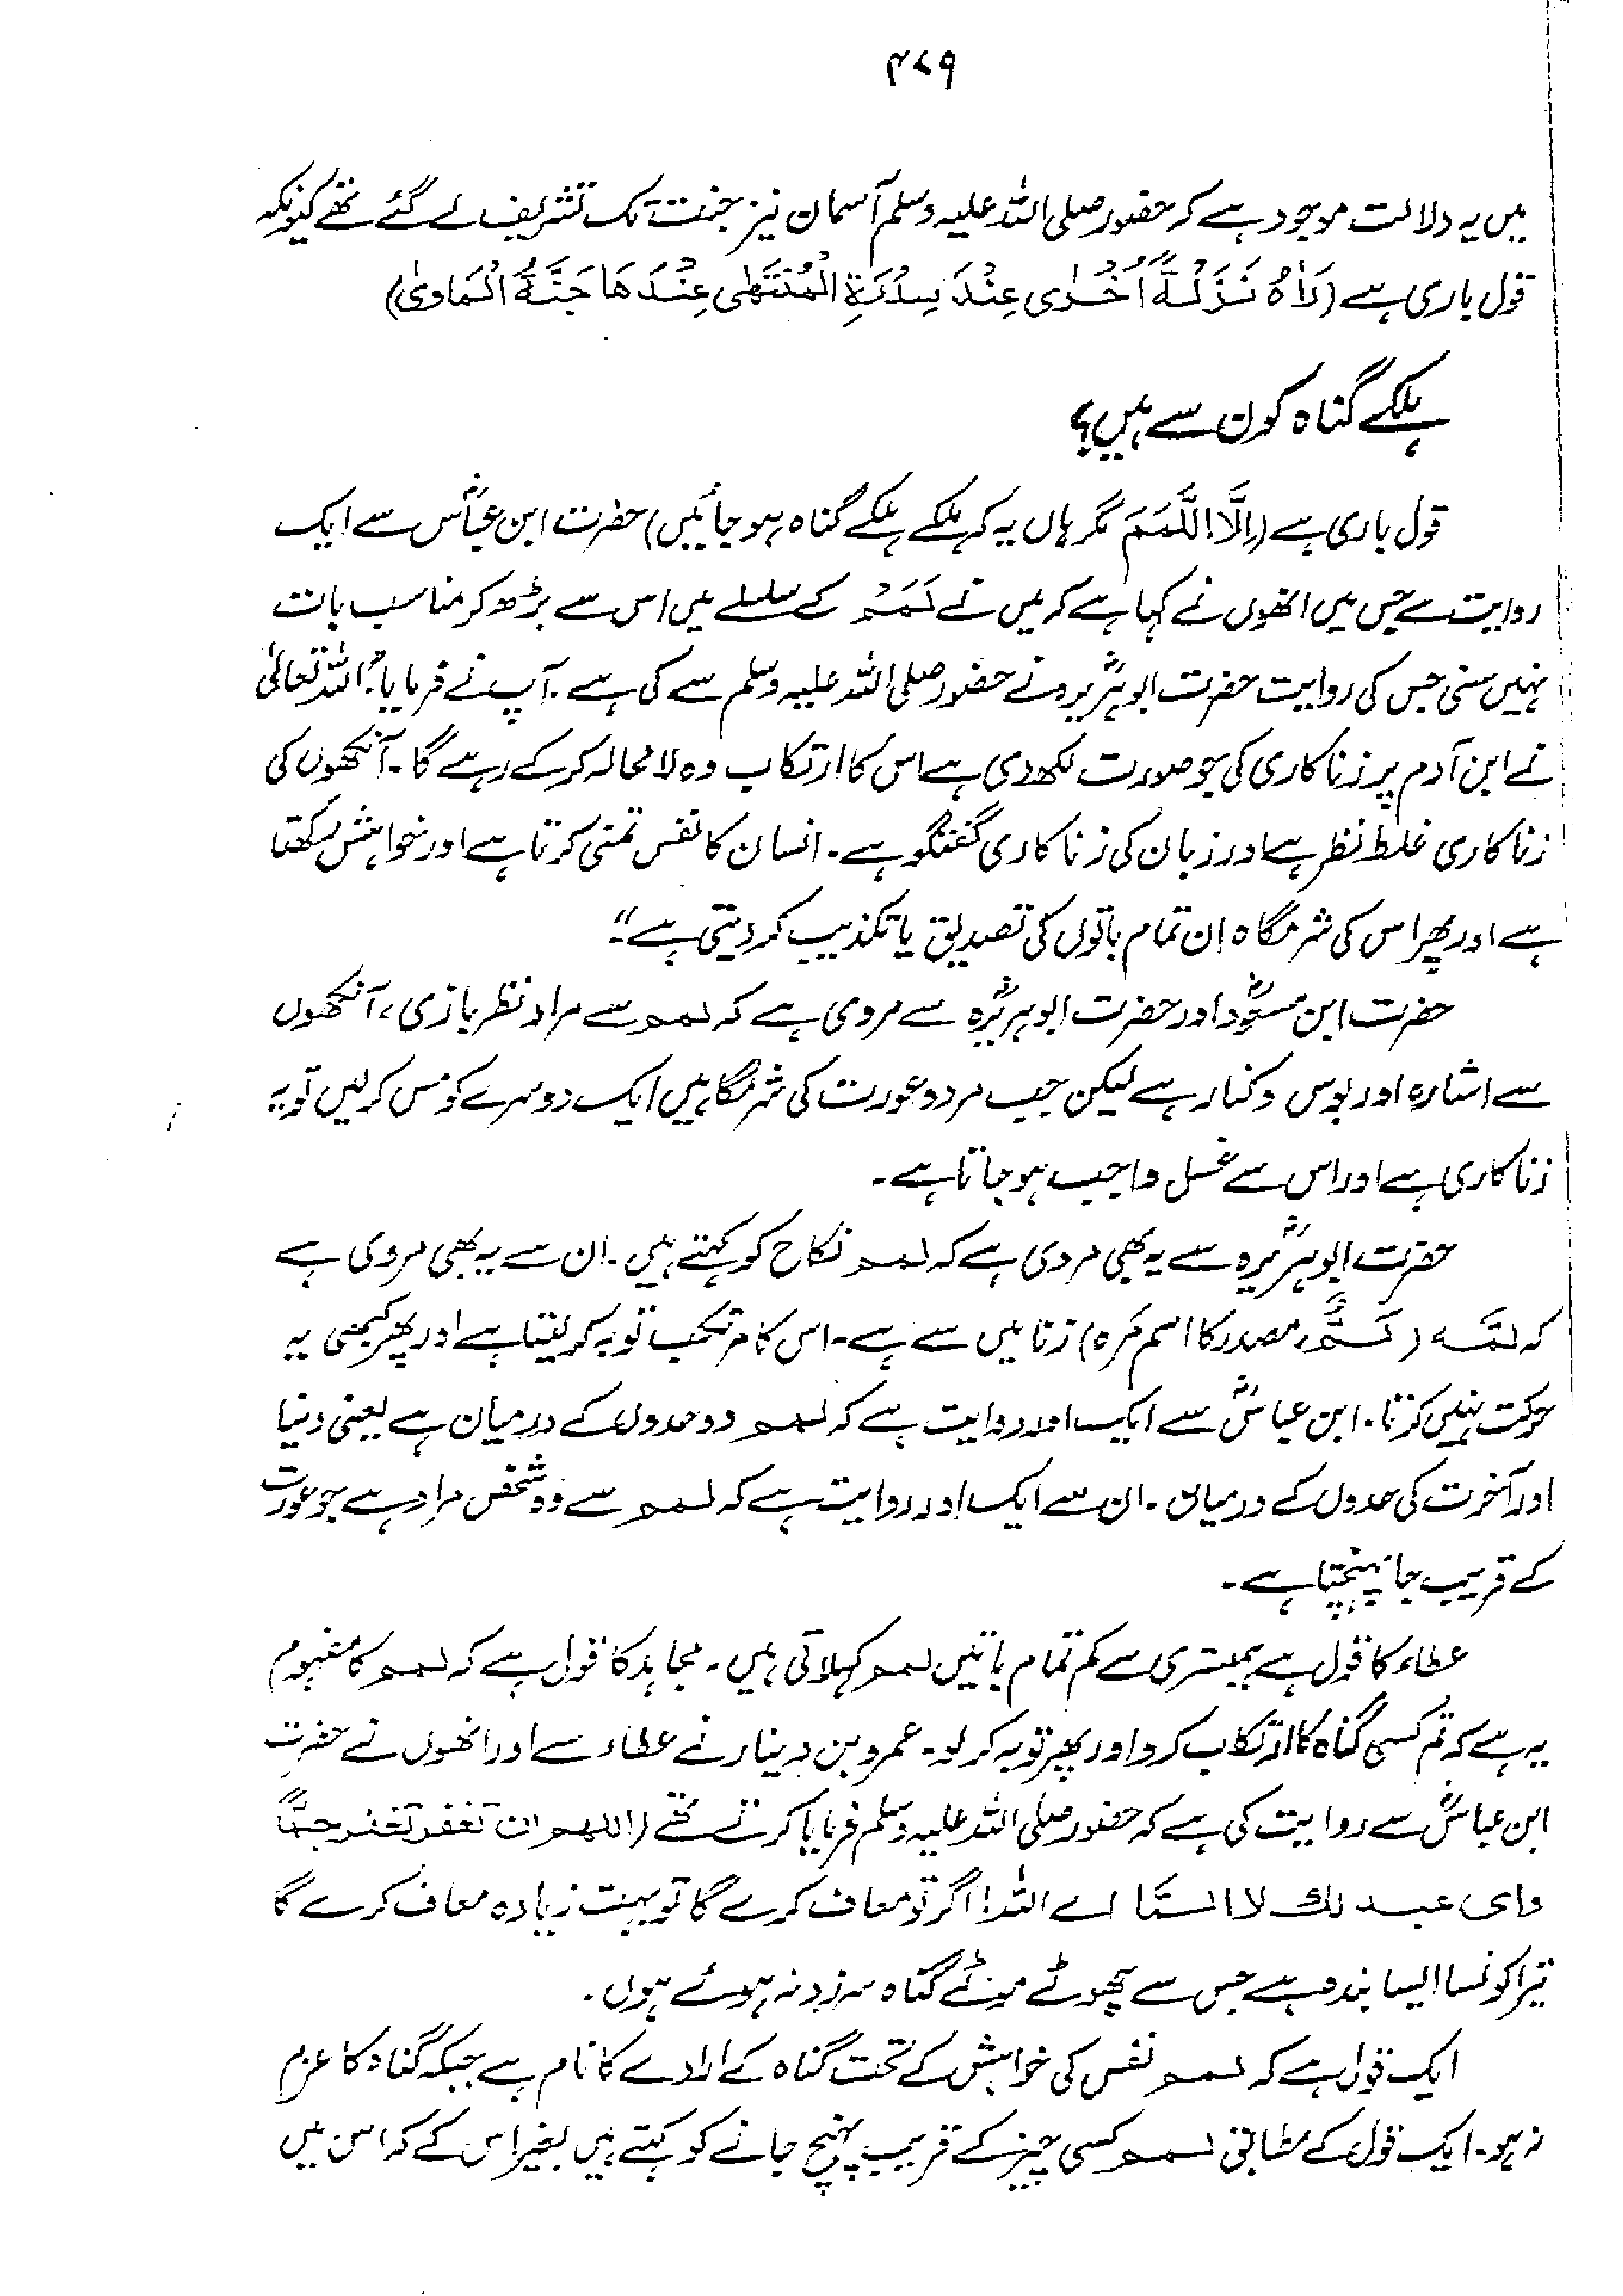 ۴۷۹
میں یہ دلالت موجود ہے کہ حضور صلی اللہ علیہ وسلم آسمان نیز جنت تک تشریف لے گئے تھے کیونکہ
قول باری ہے (رَاٰهُ نَزَلْةً اُخْرٰى عِنْدَ سِدْرَةِ الْمُنْتَهٰى عِنْدَهَا جَنَّةُ الْمَاوىٰ)
ہلکے گناہ کون سے ہیں؟
قول باری ہے (اِلَّا اللَّمَمَ مگر ہاں یہ کہ ہلکے ہلکے گناہ ہو جائیں) حضرت ابن عباسؓ سے ایک
روایت ہے جس میں انھوں نے کہا ہے کہ میں نے لَمَمْ کے سلسلے میں اس سے بڑھ کر مناسب بات
نہیں سنی جس کی روایت حضرت ابوہریرہؓ نے حضور صلی اللہ علیہ وسلم سے کی ہے۔ آپ نے فرمایا "اللہ تعالیٰ
نے ابن آدم پر زنا کاری کی جو صورت لکھ دی ہے اس کا ارتکاب وہ لا محالہ کرکے رہے گا۔ آنکھوں کی
زنا کاری غلط نظر ہے اور زبان کی زنا کاری گفتگو ہے۔ انسان کا نفس تمنی کرتا ہے اور خواہش رکھتا
ہے اور پھر اس کی شرمگاہ ان تمام باتوں کی تصدیق یا تکذیب کر دیتی ہے"۔
حضرت ابن مسعودؓ اور حضرت ابوہریرہؓ سے مروی ہے کہ لمم سے مراد نظر بازی، آنکھوں
سے اشارہ اور بوس و کنار ہے لیکن جب مرد و عورت کی شرمگاہیں ایک دوسرے کو مس کر لیں تو یہ
زنا کاری ہے اور اس سے غسل واجب ہو جاتا ہے۔
حضرت ابوہریرہؓ سے یہ بھی مروی ہے کہ لمم نکاح کو کہتے ہیں۔ ان سے یہ بھی مروی ہے
کہ لمّہ (لَمٌّ مصدر کا اسم مَرہ) زنا میں سے ہے۔ اس کا مرتکب توبہ کر لیتا ہے اور پھر کبھی یہ
حرکت نہیں کرتا۔ ابن عباسؓ سے ایک اور روایت ہے کہ لمم دو حدوں کے درمیان ہے یعنی دنیا
اور آخرت کی حدوں کے درمیان۔ ان سے ایک اور روایت ہے کہ لمم سے وہ شخص مراد ہے جو عورت
کے قریب جا پہنچتا ہے۔
عطاء کا قول ہے ہمبستری سے کم تمام باتیں لمم کہلاتی ہیں۔ مجاہد کا قول ہے کہ لمم کا مفہوم
یہ ہے کہ تم کسی گناہ کا ارتکاب کرو اور پھر توبہ کر لو۔ عمرو بن دینار نے عطاء سے اور انھوں نے حضرت
ابن عباسؓ سے روایت کی ہے کہ حضور صلی اللہ علیہ وسلم فرمایا کرتے تھے (اللهم ان تغفر تغفر جمًّا
وای عبد لك لا المتّا اے اللہ! اگر تو معاف کرے گا تو بہت زیادہ معاف کرے گا
تیرا کونسا ایسا بندہ ہے جس سے چھوٹے موٹے گناہ سرزد نہ ہوئے ہوں۔
ایک قول ہے کہ لمم نفس کی خواہش کے تحت گناہ کے ارادے کا نام ہے جبکہ گناہ کا عزم
نہ ہو۔ ایک قول کے مطابق لمم کسی چیز کے قریب پہنچ جانے کو کہتے ہیں بغیر اس کے کہ اس میں